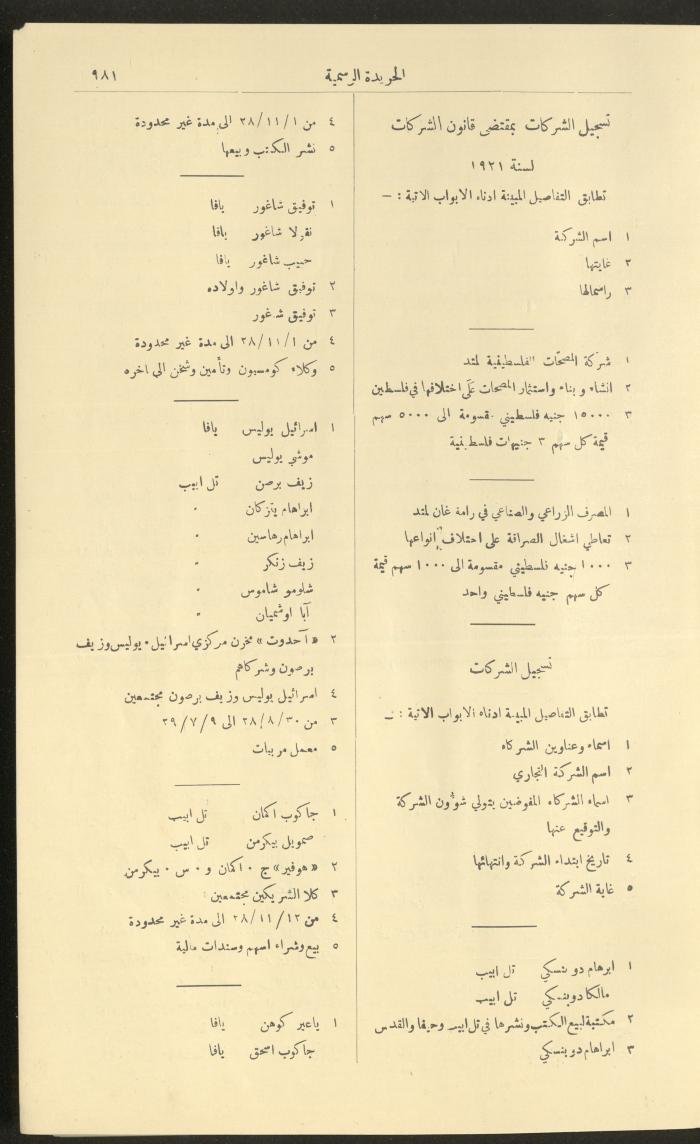 الجريدة الرسمية
٩٨١
تسجيل الشركات بمقتضى قانون الشركات
لسنة ١٩٢١
تطابق التفاصيل المبينة ادناه الابواب الاتية : —
١ اسم الشركة
٢ غايتها
٣ راسمالها
١ شركة المصحّات الفلسطينية لمتد
٢ انشاء وبناء واستثمار المصحات على اختلافها في فلسطين
٣ ١٥٠٠٠ جنيه فلسطيني مقسومة الى ٥٠٠٠ سهم
قيمة كل سهم ٣ جنيهات فلسطينية
١ المصرف الزراعي والصناعي في رامة غان لمتد
٢ تعاطي اشغال الصرافة على اختلاف انواعها
٣ ١٠٠٠ جنيه فلسطيني مقسومة الى ١٠٠٠ سهم قيمة
كل سهم جنيه فلسطيني واحد
تسجيل الشركات
تطابق التفاصيل المبينة ادناه الابواب الاتية : —
١ اسماء وعناوين الشركاء
٢ اسم الشركة التجاري
٣ اسماء الشركاء المفوضين بتولي شؤون الشركة
والتوقيع عنها
٤ تاريخ ابتداء الشركة وانتهائها
٥ غاية الشركة
١ ابرهام دوبنسكي تل ابيب
مالكا دوبنسكي تل ابيب
٢ مكتبة لبيع الكتب ونشرها في تل ابيب وحيفا والقدس
٣ ابراهام دوبنسكي
٤ من ٢٨/١١/١ الى مدة غير محدودة
٥ نشر الكتب وبيعها
١ توفيق شاغور يافا
نقولا شاغور يافا
حبيب شاغور يافا
٢ توفيق شاغور واولاده
٣ توفيق شاغور
٤ من ٢٨/١١/١ الى مدة غير محدودة
٥ وكلاء كومسيون وتأمين وشحن الى اخره
١ اسرائيل بوليس يافا
موشي بوليس
زيف برصن تل ابيب
ابراهام يتزكان "
ابراهام رهاسين "
زيف زنكر "
شلومو شاموس "
آبا اوشميان "
٢ «آحدوت» مخزن مركزي اسرائيل . بوليس وزيف
برصون وشركاهم
٤ اسرائيل بوليس وزيف برصون مجتمعين
٣ من ٢٨/٨/٣٠ الى ٢٩/٧/٩
٥ معمل مربيات
١ جاكوب اكمان تل ابيب
صمويل بيكرمن تل ابيب
٢ «هوفير» ج . اكمان و . س . بيكرمن
٣ كلا الشريكين مجتمعين
٤ من ٢٨/١١/١٢ الى مدة غير محدودة
٥ بيع وشراء اسهم وسندات مالية
١ ياعير كوهن يافا
جاكوب اسحق يافا